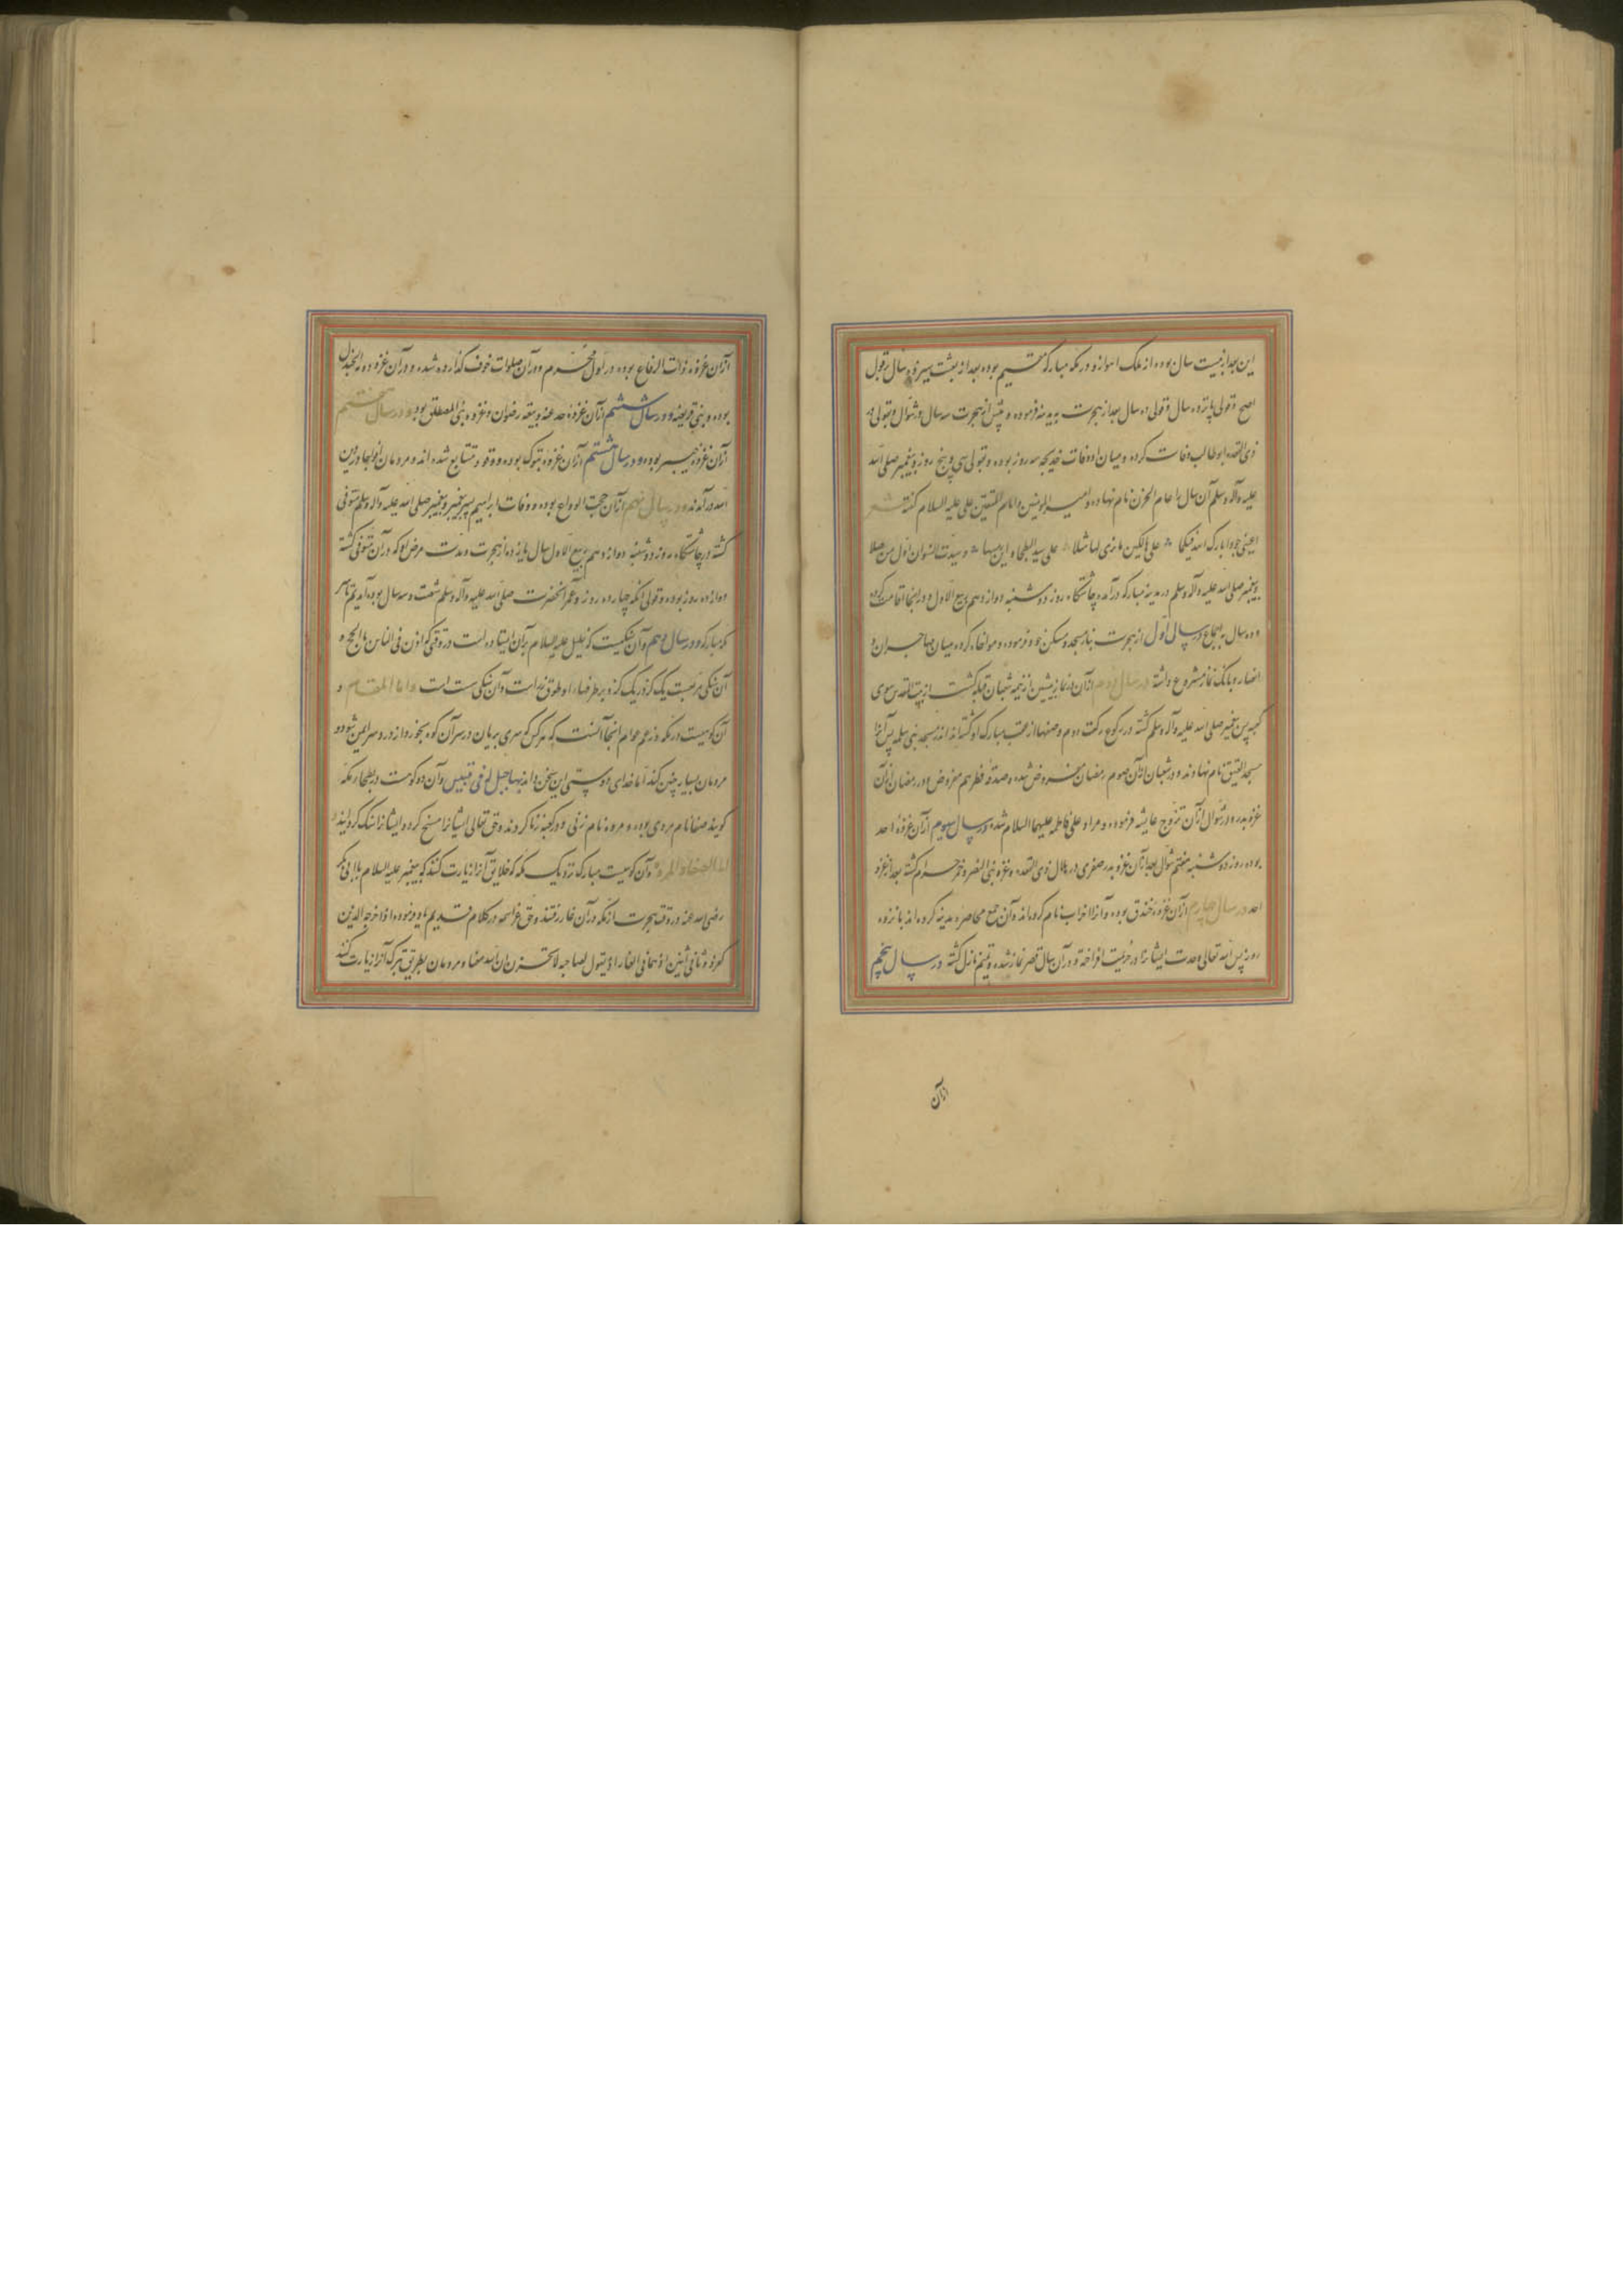 این بعد از بیست سال بوده از ملک اهواز و در مکه مبارکه مقیم بوده بعد از بعثت سیزده سال بر قول
اصح و قولی پانزده سال و قولی ده سال بعد از هجرت بمدینه فرموده و پیش از هجرت سه سال در شوال و بقولی در
ذی القعده ابوطالب وفات کرده و میان او و وفات خدیجه سه روز بوده و بقولی سی و پنج روز و پیغمبر صلی الله
علیه و آله و سلم آن سال را عام الحزن نام نهاده و امیر المومنین و امام المتقین علی علیه السلام گفته شعر
اعینی جودا بارک الله فیکما علی هالکین ما تری لهما مثلا علی سید البطحا و ابن سیدها و سیدة النسوان اول من صلا
پیغمبر صلی الله علیه و آله و سلم در مدینه مبارکه درآمده چاشتگاه روز دوشنبه دوازدهم ربیع الاول و در اینجا اقامت کرده
و ده سال به اجماع در سال اول از هجرت بنا مسجد و مسکن خود فرموده و مواخاه کرده میان مهاجران و
انصار و بانگ نماز مشروع داشته در سال دوم ازآن در نماز پیشین از نیمه شعبان قبله گشت از بیت المقدس سوی
کعبه پس پیغمبر صلی الله علیه و آله و سلم گشته در رکوع رکعت دوم و صفها از عقب مبارک او گشته‌اند در مسجد بنی سلمه پس آنرا
مسجد القبلتین نام نهاوند و در شعبان ازآن صوم رمضان مفروض شده و صدقه فطر هم مفروض و در رمضان ازآن
غزوه بدر و در شوال ازآن تزوج عایشه فرموده و مراد علی فاطمه علیهما السلام شده در سال سیوم ازآن غزوه احد
بوده روز دوشنبه هفتم شوال بعد ازآن غزو بدر صغری در هلال ذی القعده و غزوه بنی النضر و خمر حرام گشته بعد از غزو
احد در سال چهارم ازآن غزوه خندق بوده و آنرا احزاب نام کرده‌اند و آن جمع محاصره مدینه کرده‌اند پانزده
روز پس الله تعالی وحدت ایشانرا در حزبیت انداخته و در آن سال قصر نماز شده و تیمم نازل گشته در سال پنجم
ازآن
ازآن غزوه ذات الرقاع بوده در اول محرم و در آن صلوات خوف گذارده شده و در آن غزو دومة الجندل
بوده و بنی قریضه و در سال ششم ازآن غزوه حدیبیه و بیعه رضوان و غزوه بنی المصطلق بود و در سال هفتم
ازآن غزوه خیبر بوده و در سال هشتم ازآن غزوه تبوک بوده و وفود متتابع شده‌اند و مردمان افواجا در دین
الله درآمدند و در سال نهم ازآن حجة الوداع بوده و وفات ابراهیم پسر پیغمبر و پیغمبر صلی الله علیه و آله و سلم متوفی
گشته در چاشتگاه روز دوشنبه دوازدهم ربیع الاول سال یازده از هجرت و مدت مرض او که درآن متوفی گشته
دوازده روز بوده و قولی آنکه چهارده روز و عمر آنحضرت صلی الله علیه و آله و سلم شصت و سه سال بوده آمدیم بر
که مبارکه و در سال دهم و آن سنگیست که خلیل علیه السلام بر آن ایستاده است در وقتی که اذن فی الناس بالحج و
آن سنگی مربعست یک گز در یک گز و بر طرفهاء او طوق نه است و آن سنگی ست است و اما المقام و
آن کوهیست در مکه و زعم عوام انجا آنست که هر کس که سری بریان در سر آن کوه بخورد از درد سر ایمن شود و
مردمان بسیار چنین کند اما خدای او بستی این سخن داند بها جبل ابی قبیس و آن دو کوهست در بطحاء مکه
گویند صفا نام مردی بوده و مروه نام زنی و در کعبه زنا کردند و حق تعالی ایشانرا مسخ کرد و ایشانرا سنگ گردانید
اما الصفا و المروه و آن کوهیست مبارک نزدیک مکه که خلایق آنرا زیارت کنند که پیغمبر علیه السلام با ابی بکر
رضی الله عنه در وقت هجرت از مکه درآن غار رفتند و حق عز اسمه در کلام قدیم یاد فرموده اذ اخرجه الذین
کفروا ثانی اثنین اذ هما فی الغار اذ یقول لصاحبه لا تحزن ان الله معنا و مردمان بطریق تبرک آنرا زیارت کنند